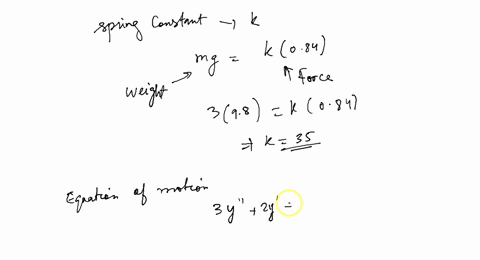 spring Constant → k
mg = k(0.84)
weight
↑ Force
3(9.8) = k(0.84)
⇒ k = 35
Equation of motion
3y'' + 2y' =